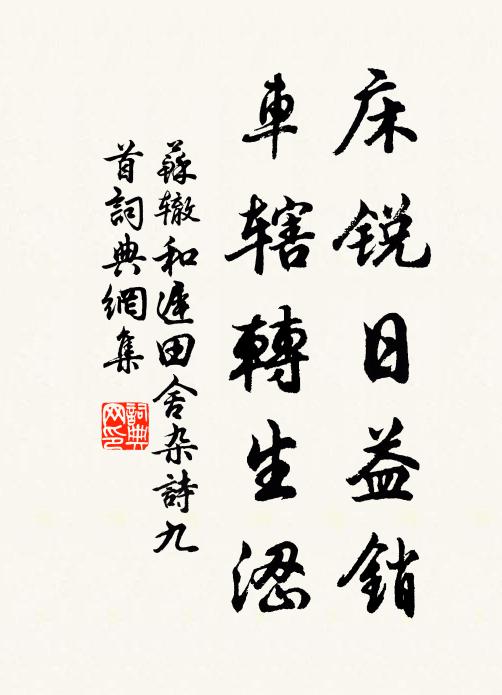 床锐日益銷
車辖轉生涩
蘇辙和遲田舍杂詩九
首詞典網集
詞典
网印